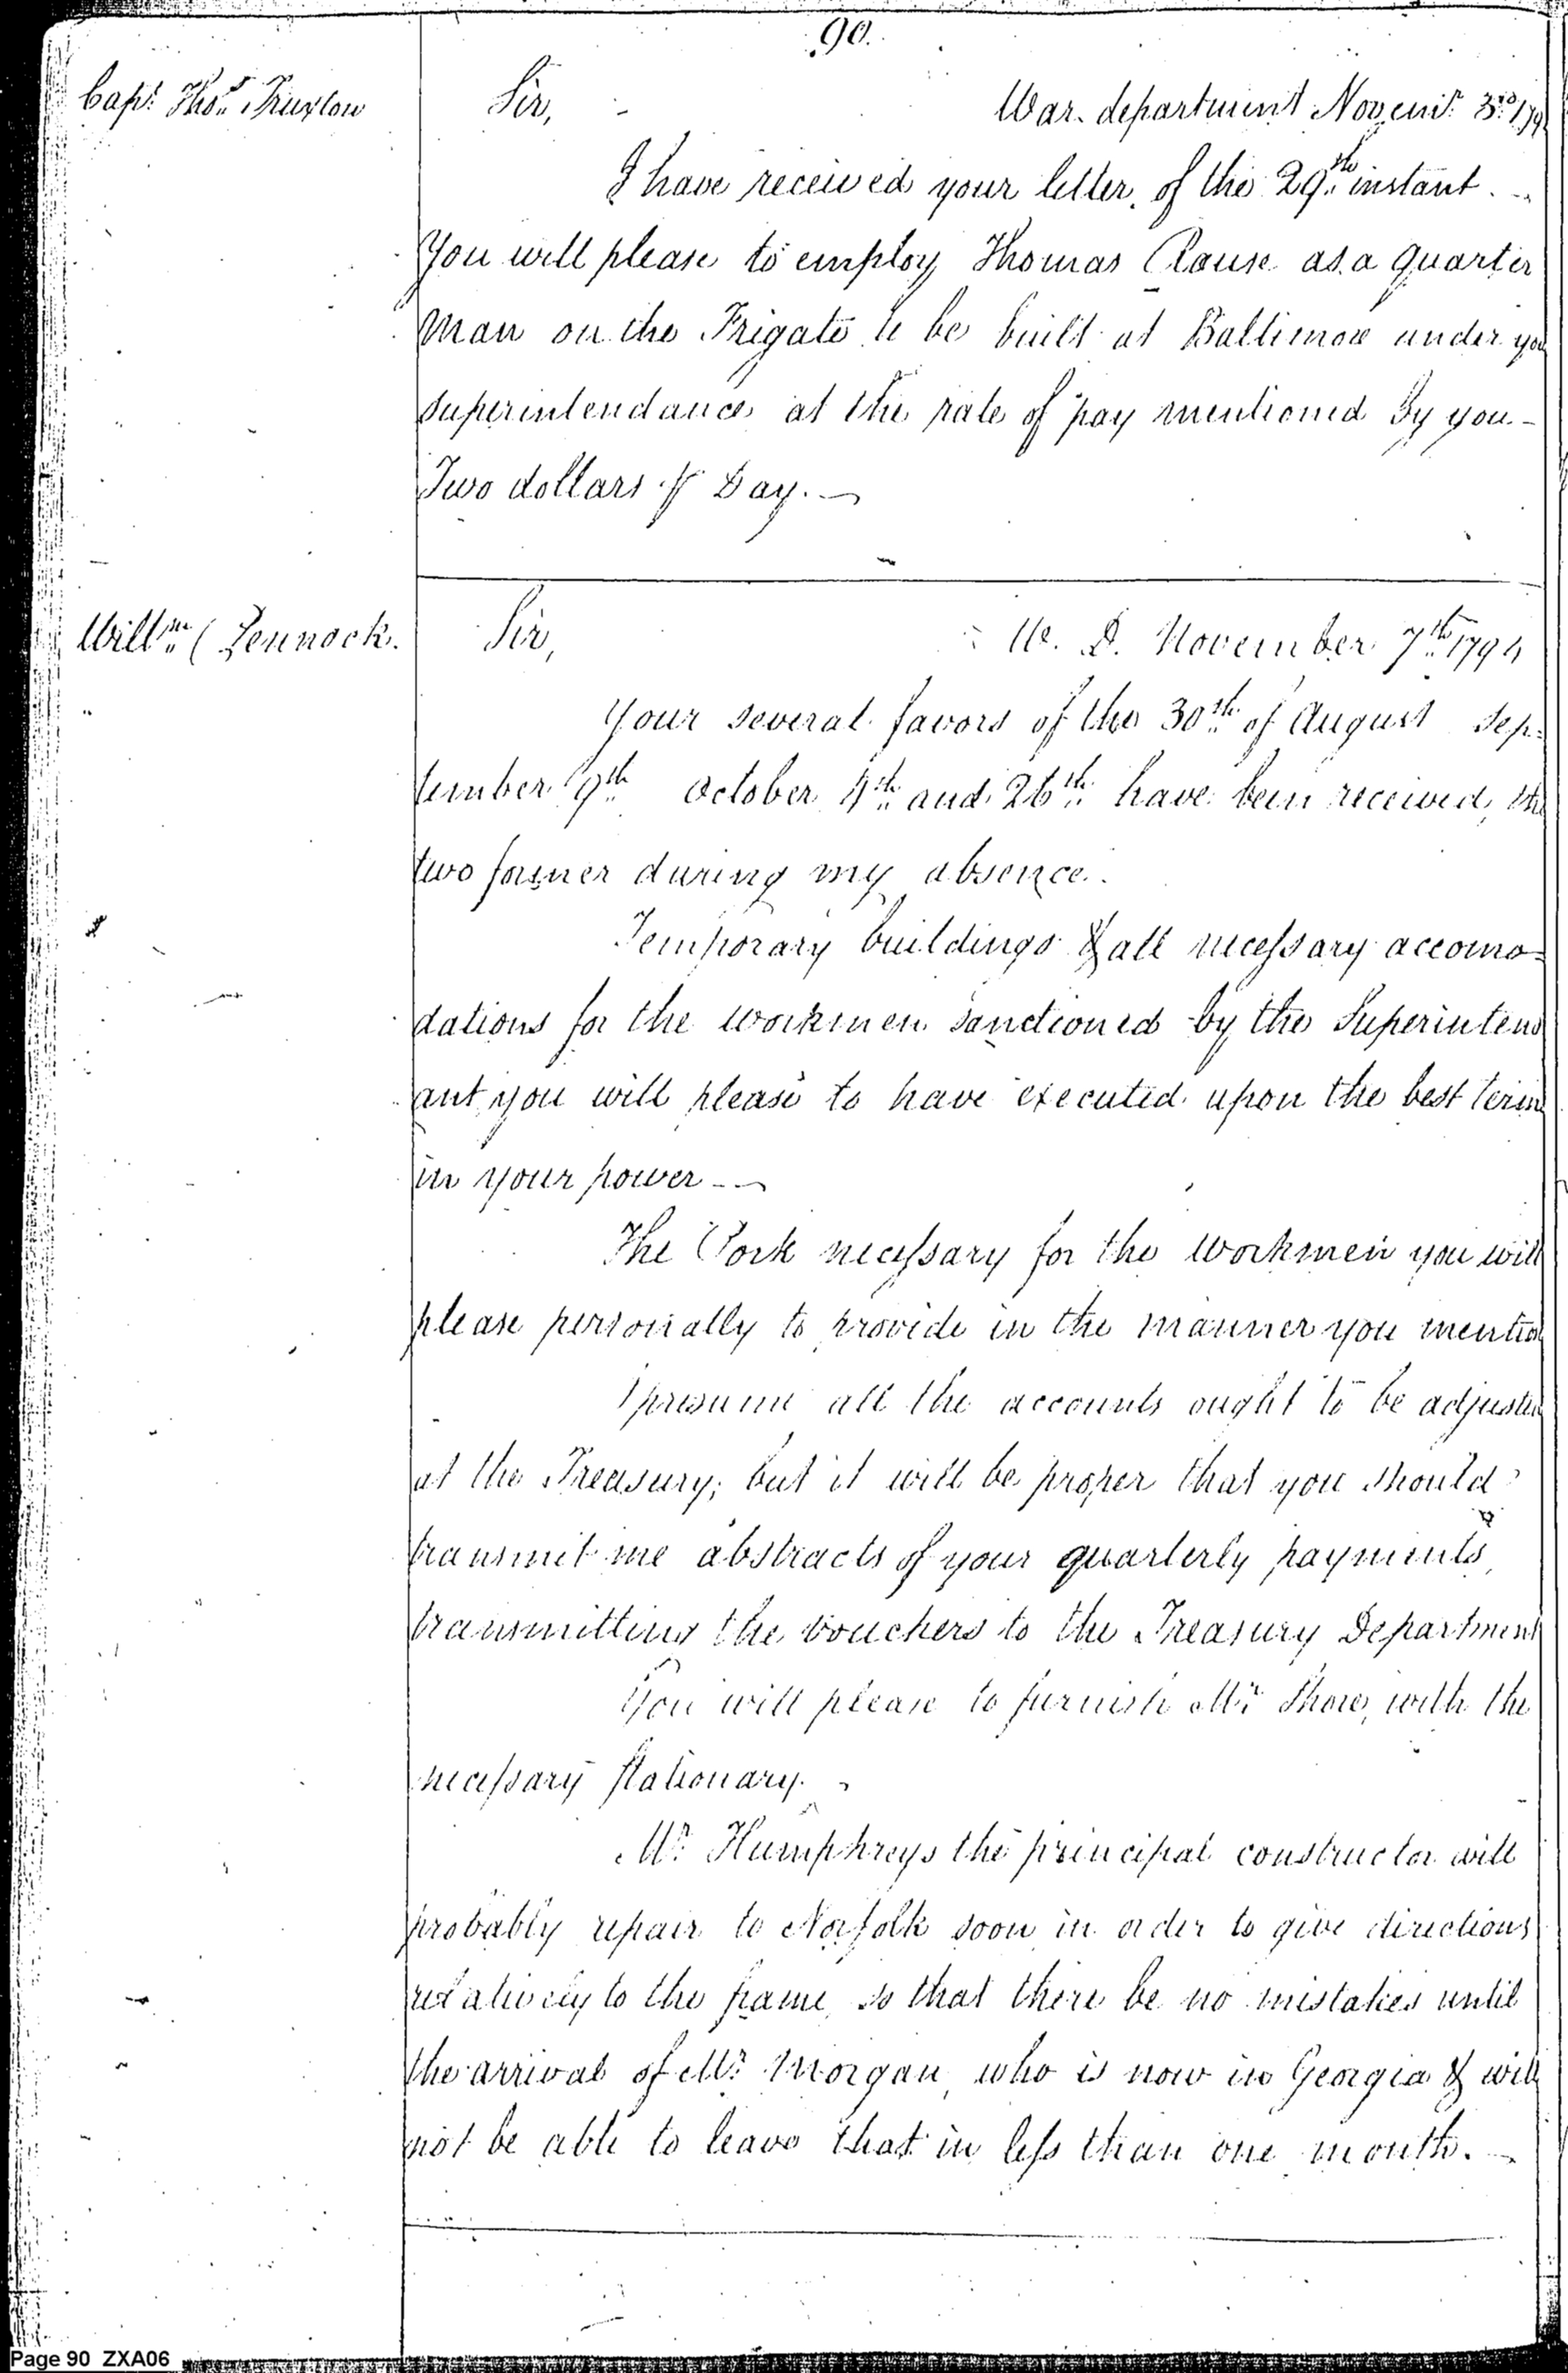 90.
Capt. Thos. Truxton
Sir,
War department Novemr. 3rd 179
I have received your letter of the 29th instant.
You will please to employ Thomas Rause as a quarter
man on the Frigate to be built at Baltimore under you
superintendance at the rate of pay mentioned by you -
Two dollars ⅌ Day. -
Willm. Pennock.
Sir,
W. D. November 7th 1794
Your several favors of the 30th of August Sep=
tember 9th October 4th and 26th have been received, the
two former during my absence.
Temporary buildings & all necessary accomo=
dations for the workmen sanctioned by the Superintend
ant you will please to have executed upon the best term
in your power --
The Pork necessary for the workmen you will
please personally to provide in the manner you mention
I presume all the accounts ought to be adjusted
at the Treasury; but it will be proper that you should
transmit me abstracts of your quarterly payments,
transmitting the vouchers to the Treasury Department
You will please to furnish Mr. Shore, with the
necessary stationary.
Mr. Humphreys the principal constructor will
probably repair to Norfolk soon in order to give directions
relatively to the frame, so that there be no mistakes until
the arrival of Mr. Morgan, who is now in Georgia & will
not be able to leave that in less than one month. -
Page 90 ZXA06